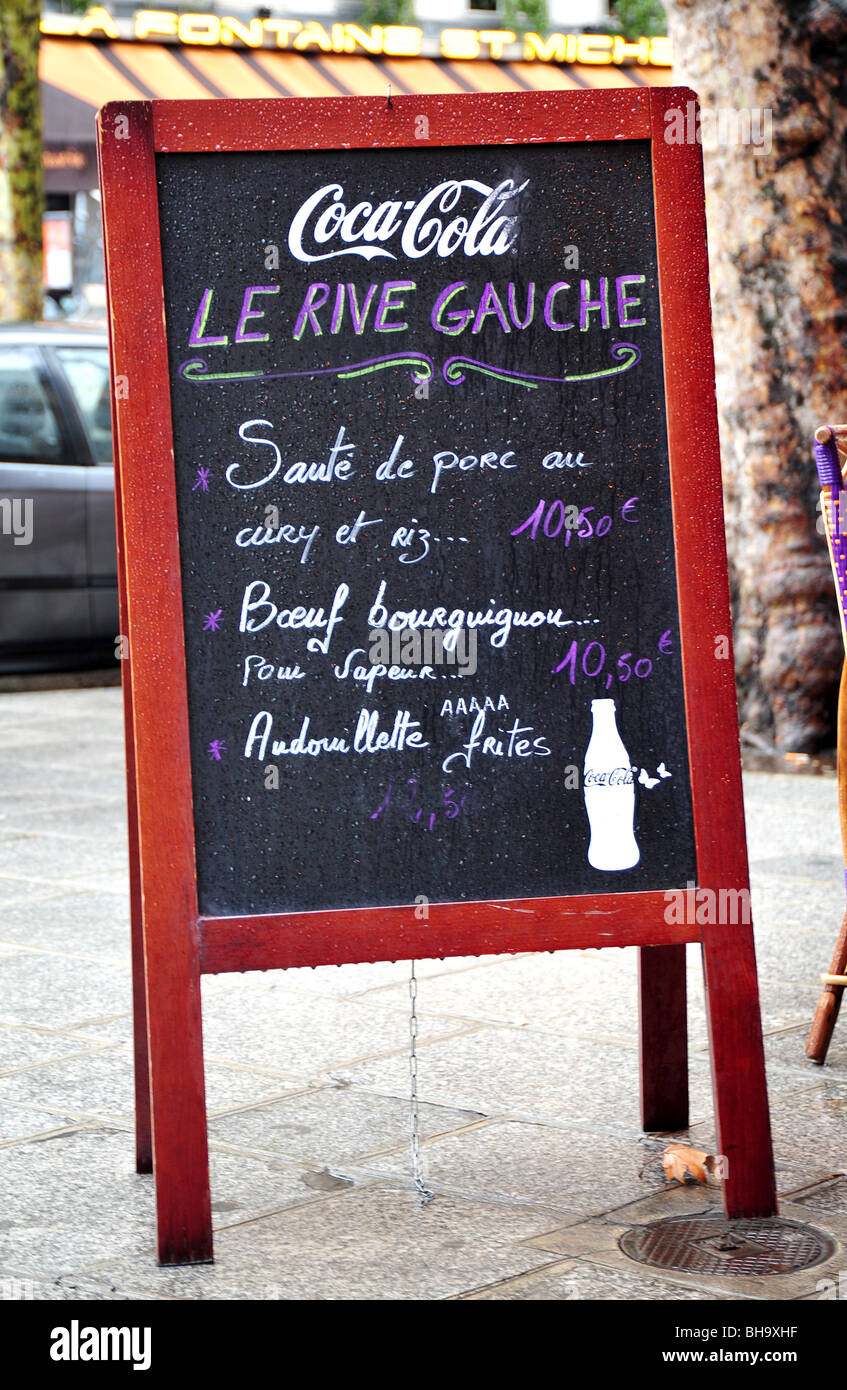 LA FONTAINE ST MICHEL
Coca-Cola
LE RIVE GAUCHE
* Sauté de porc au
cury et riz... 10,50 €
* Bœuf bourguignon...
Pom Vapeur... 10,50 €
* Andouillette AAAAA frites
10,50
Coca-Cola
alamy
Image ID: BH9XHF
www.alamy.com